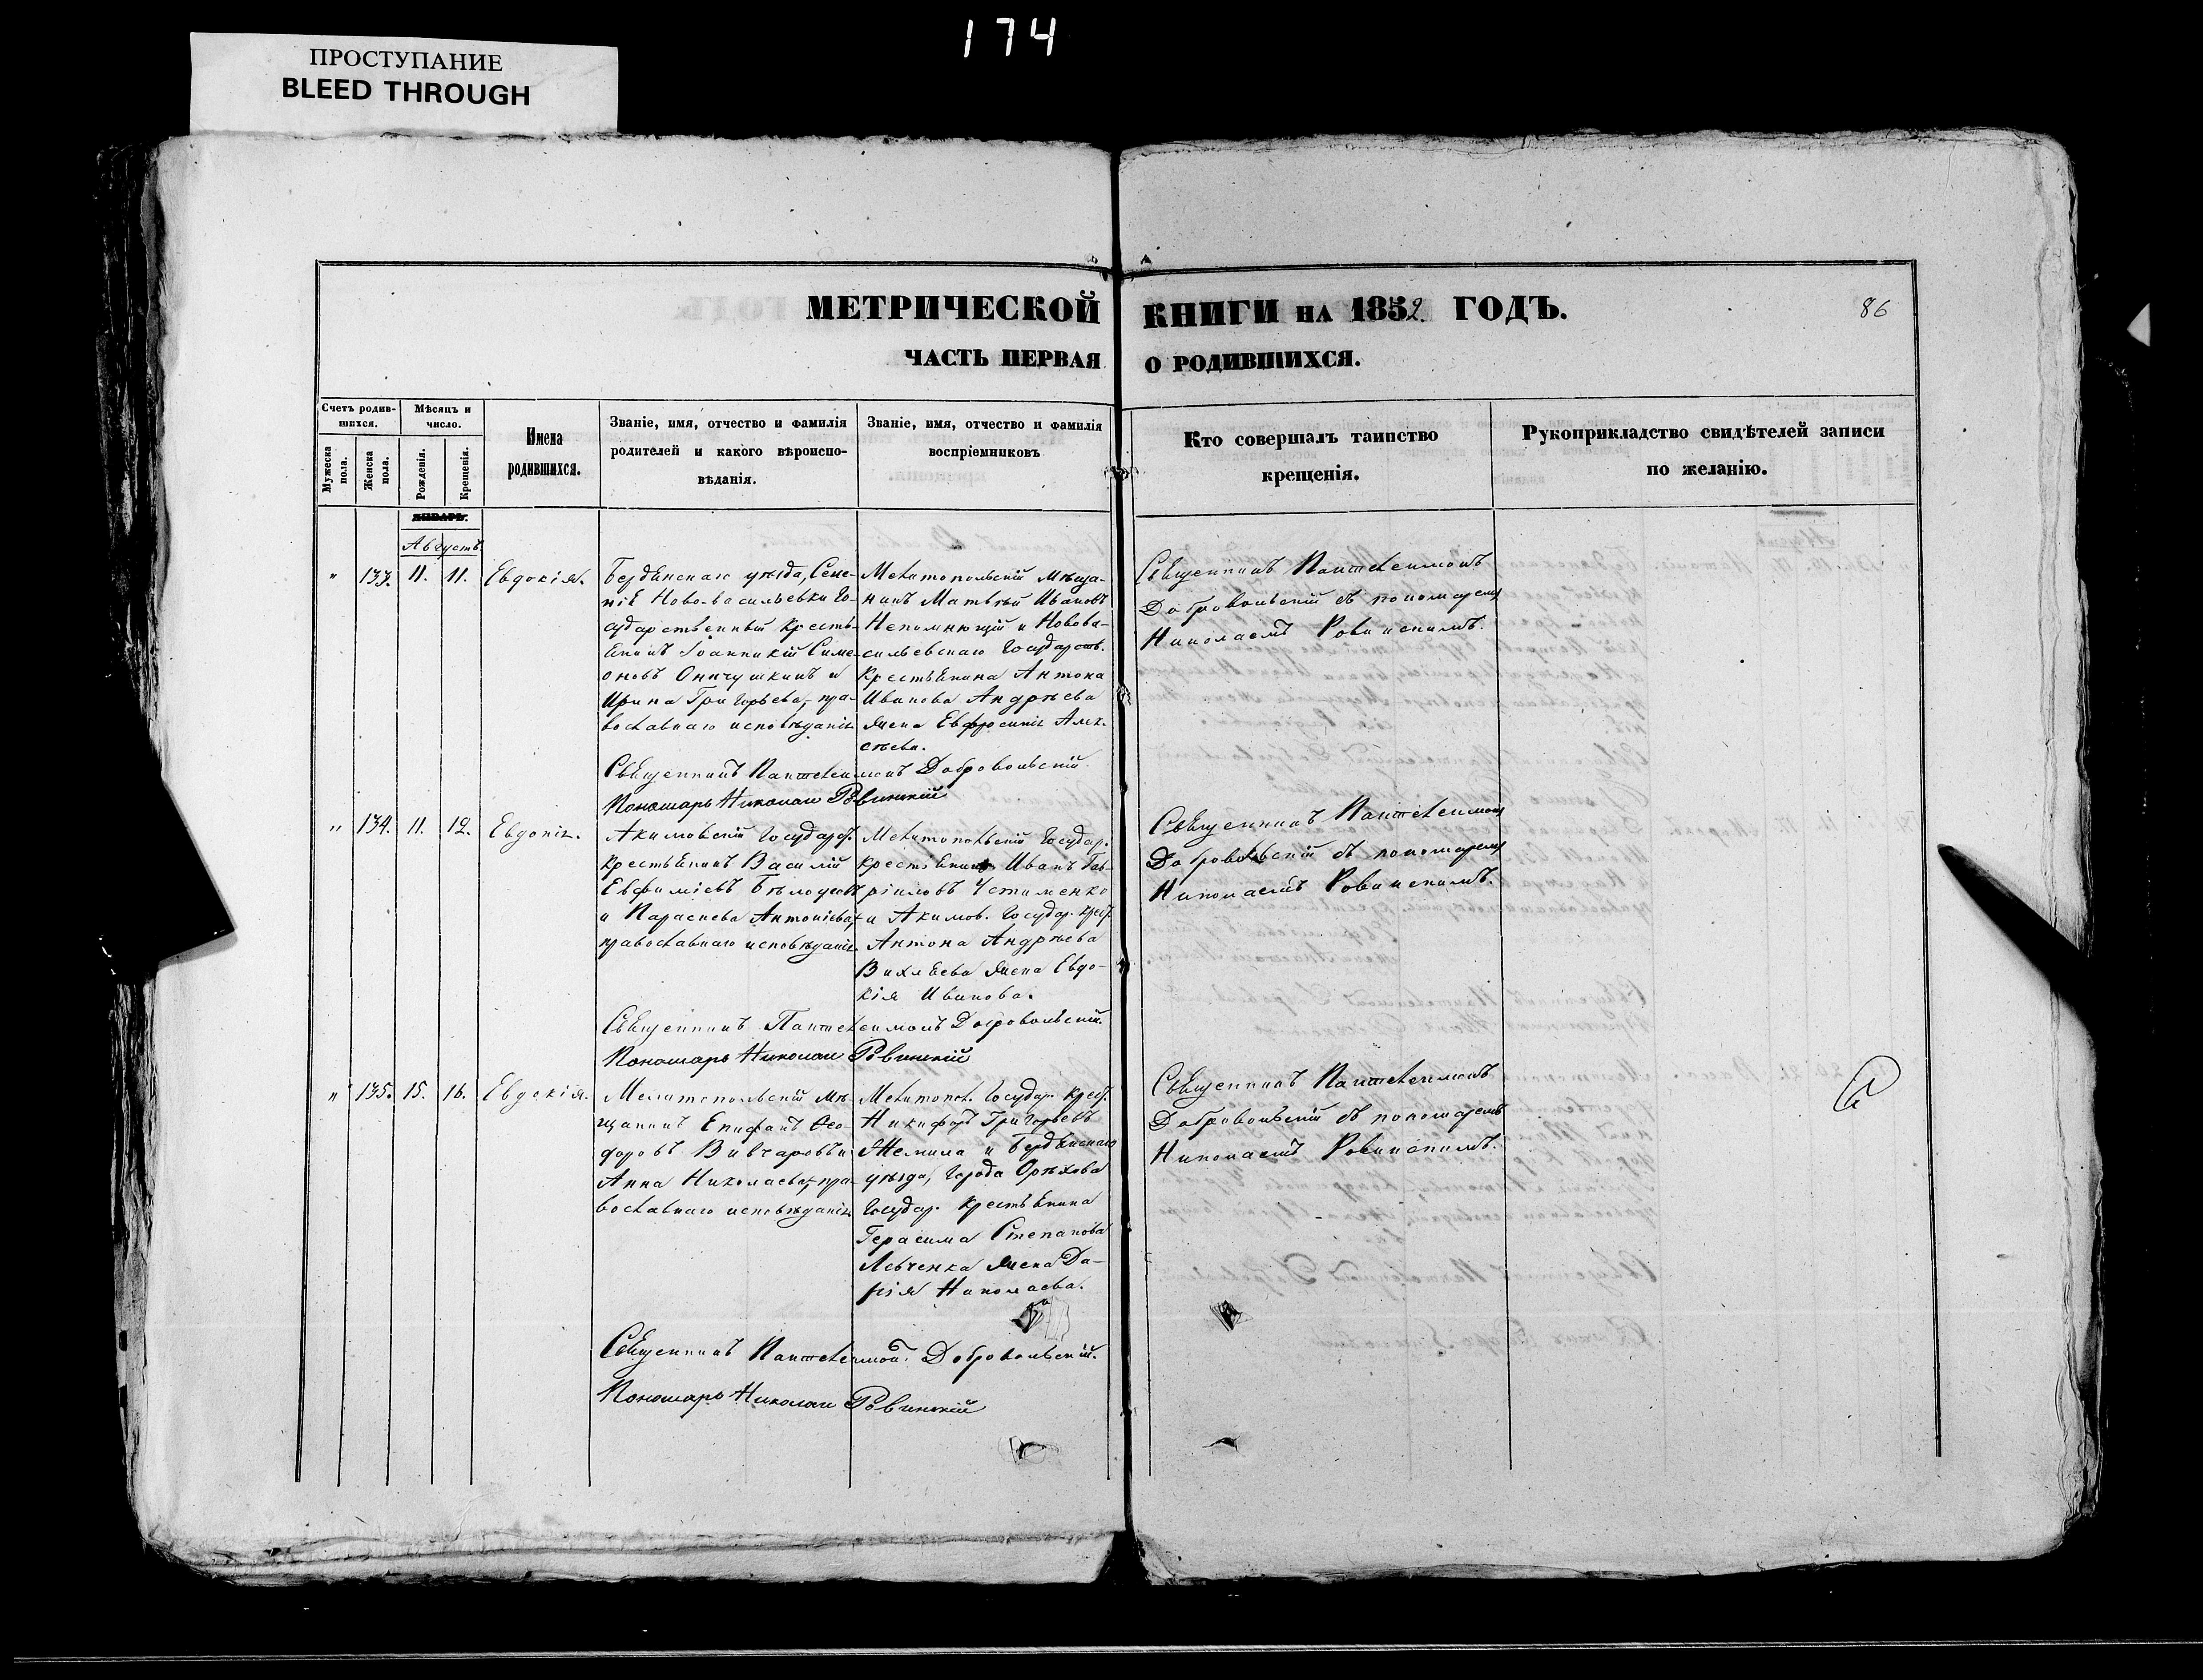 174
ПРОСТУПАНИЕ
BLEED THROUGH
МЕТРИЧЕСКОЙ КНИГИ НА 1852 ГОДЪ.
86
ЧАСТЬ ПЕРВАЯ О РОДИВШИХСЯ.
Счетъ родив-
шихся.
Мужеска
пола.
Женска
пола.
Мѣсяцъ и
число.
Рожденія.
Крещенія.
Имена
родившихся.
Званіе, имя, отчество и фамилія
родителей и какого вѣроиспо-
вѣданія.
Званіе, имя, отчество и фамилія
воспріемниковъ
Кто совершалъ таинство
крещенія.
Рукоприкладство свидѣтелей записи
по желанію.
ЯНВАРЬ.
Августъ.
" 133. 11. 11. Евдокія.
Бердянскаго уѣзда, Селе-
нія Ново-васильевки Го-
сударственный кресть-
янинъ Іоанникій Симе-
оновъ Оничушкинъ и
Ирина Григорьева, пра-
вославнаго исповѣданія
Мелитопольскій мѣща-
нинъ Матвѣй Ивановъ
Непомнющій и Новова-
сильевскаго Государств.
крестьянина Антона
Иванова Андрѣева
жена Евфросинія Алек-
сѣева.
Священникъ Пантелеимонъ
Добровольскій съ пономаремъ
Николаемъ Ровинскимъ.
Священникъ Пантелеимонъ Добровольскій.
Пономарь Николай Ровинскій
" 134. 11. 12. Евдокія.
Акимовскій Государст.
крестьянинъ Василій
Евфиміевъ Бѣлоусовъ
и Параскева Антоніева,
православнаго исповѣданія.
Мелитопольскій Государ.
крестьянинъ Иванъ Гав-
ріиловъ Устименко
и Акимов. Государ. крест.
Антона Андрѣева
Вихляева жена Евдо-
кія Иванова.
Священникъ Пантелеимонъ
Добровольскій съ пономаремъ
Николаемъ Ровинскимъ.
Священникъ Пантелеимонъ Добровольскій.
Пономарь Николай Ровинскій
" 135. 15. 16. Евдокія.
Мелитопольскій мѣ-
щанинъ Епифанъ Ѳео-
доровъ Вивчаровъ и
Анна Николаева, пра-
вославнаго исповѣданія
Мелитопол. Государ. крест.
Никифоръ Григорьевъ
Жемила и Бердянскаго
уѣзда, города Орѣхова
Государ. крестьянина
Герасима Степанова
Левченка жена Да-
рія Николаева.
Священникъ Пантелеимонъ
Добровольскій съ пономаремъ
Николаемъ Ровинскимъ.
Священникъ Пантелеимонъ Добровольскій.
Пономарь Николай Ровинскій